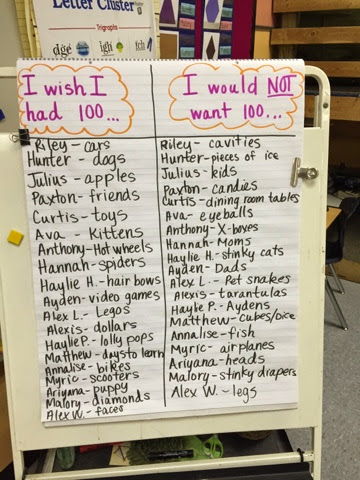 Letter Cluster
Trigraphs
dge
igh
tch
I wish I
had 100...
Riley - cars
Hunter - dogs
Julius - apples
Paxton - friends
Curtis - toys
Ava - Kittens
Anthony - Hot wheels
Hannah - spiders
Haylie H. - hair bows
Ayden - video games
Alex L. - Legos
Alexis - dollars
Haylie P. - lolly pops
Matthew - days to learn
Annalise - bikes
Myric - scooters
Ariyana - puppy
Malory - diamonds
Alex W. - faces
I would NOT
want 100...
Riley - cavities
Hunter - pieces of ice
Julius - kids
Paxton - candies
Curtis - dining room tables
Ava - eyeballs
Anthony - X-boxes
Hannah - Moms
Haylie H. - stinky cats
Ayden - Dads
Alex L. - Pet snakes
Alexis - tarantulas
Haylie P. - Aydens
Matthew - cubes/dice
Annalise - fish
Myric - airplanes
Ariyana - heads
Malory - stinky drapers
Alex W. - legs